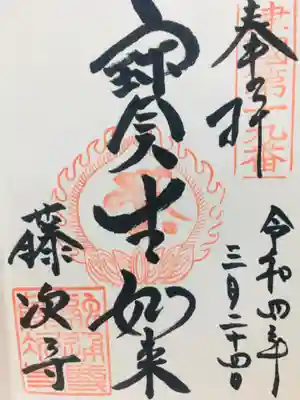 奉拝
令和四年
三月二十四日
寶生如来
藤次寺